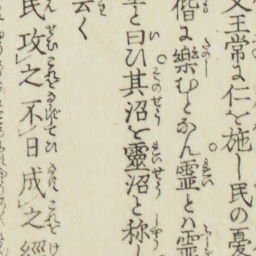 文王常に仁を施し民の憂
偕に樂むとなん靈とハ靈
臺と曰ひ其沼を靈沼と称し
云く
民攻之不日成之經